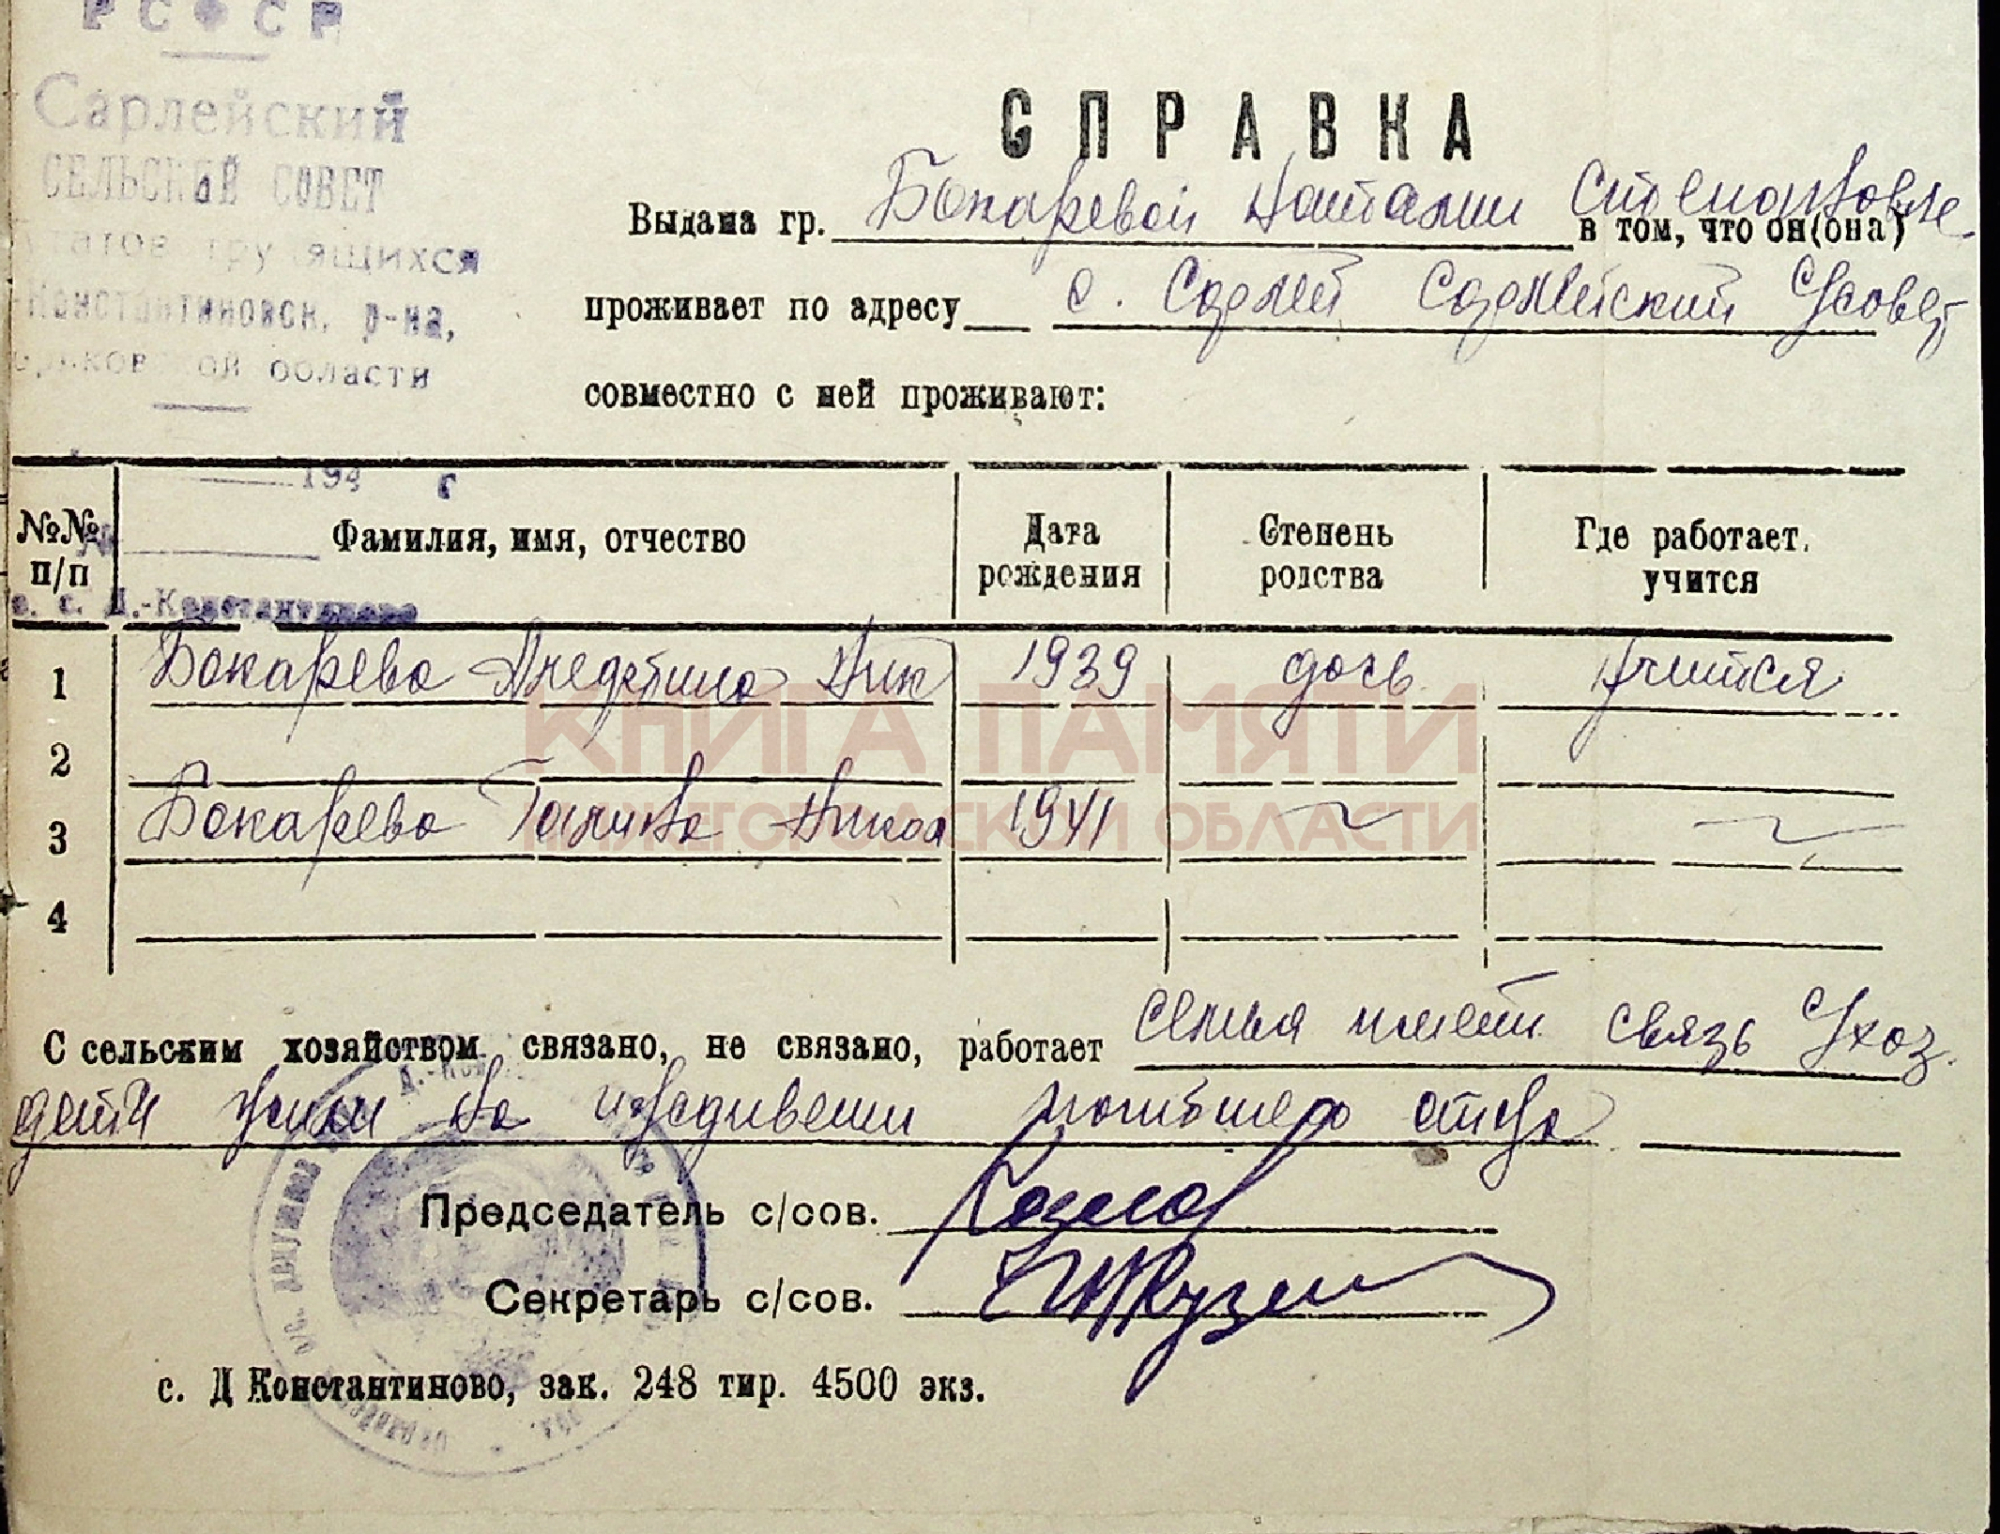 РСФСР
Сарлейский
СЕЛЬСКИЙ СОВЕТ
атов тру ящихся
Константиновск. р-на,
ской области
194 г
с. Д.-Константиново
СПРАВКА
Выдана гр. Бокаревой Наталии Степановне в том, что он(она)
проживает по адресу с. Сарлей Сарлейский с/совет
совместно с ней проживают:
№№ п/п Фамилия, имя, отчество Дата рождения Степень родства Где работает, учится
1 Бокарева Ник 1939 дочь учится
2
3 Бокарева Галина Никол 1941 〃 〃
4
КНИГА ПАМЯТИ
НИЖЕГОРОДСКОЙ ОБЛАСТИ
С сельским хозяйством связано, не связано, работает семья имеет связь с/хоз.
дети жили на иждивении погибшего отца
Председатель с/сов. Козлов
Секретарь с/сов.
с. Д Константиново, зак. 248 тир. 4500 экз.